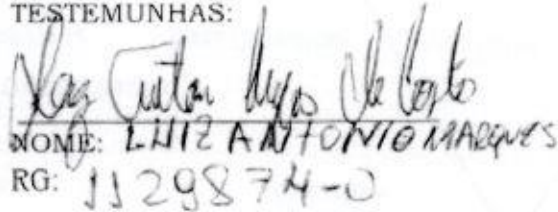 TESTEMUNHAS:
NOME: LUIZ ANTONIO MARQUES
RG: 1129874-0